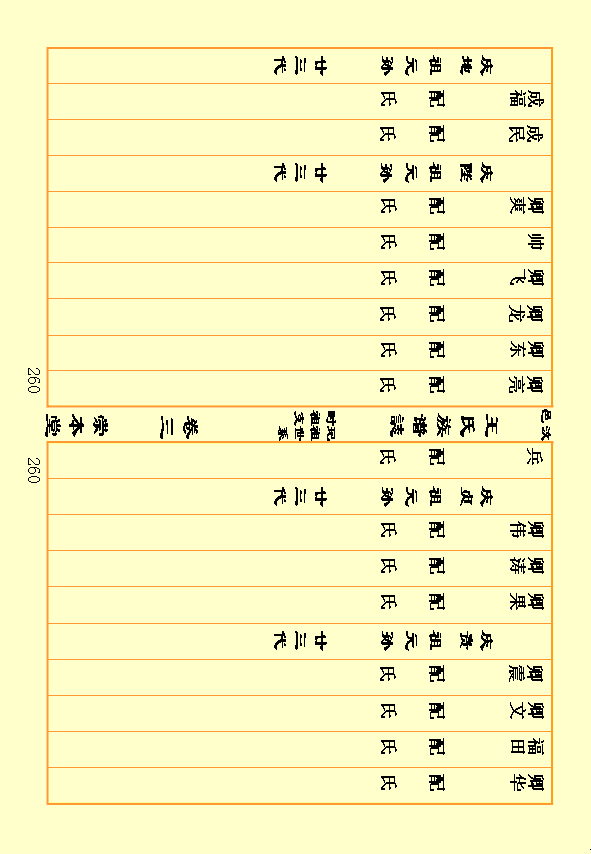 卿华 配 氏
福田 配 氏
卿文 配 氏
卿震 配 氏
庆贵祖元孙 廿三代
卿果 配 氏
卿涛 配 氏
卿伟 配 氏
庆贞祖元孙 廿三代
兵 配 氏
260
汶邑 王氏族譜誌 祖世 祖支 系 卷三 崇本堂
卿亮 配 氏
卿东 配 氏
卿龙 配 氏
卿飞 配 氏
帅 配 氏
卿爽 配 氏
庆陞祖元孙 廿三代
成民 配 氏
成福 配 氏
庆地祖元孙 廿三代
260